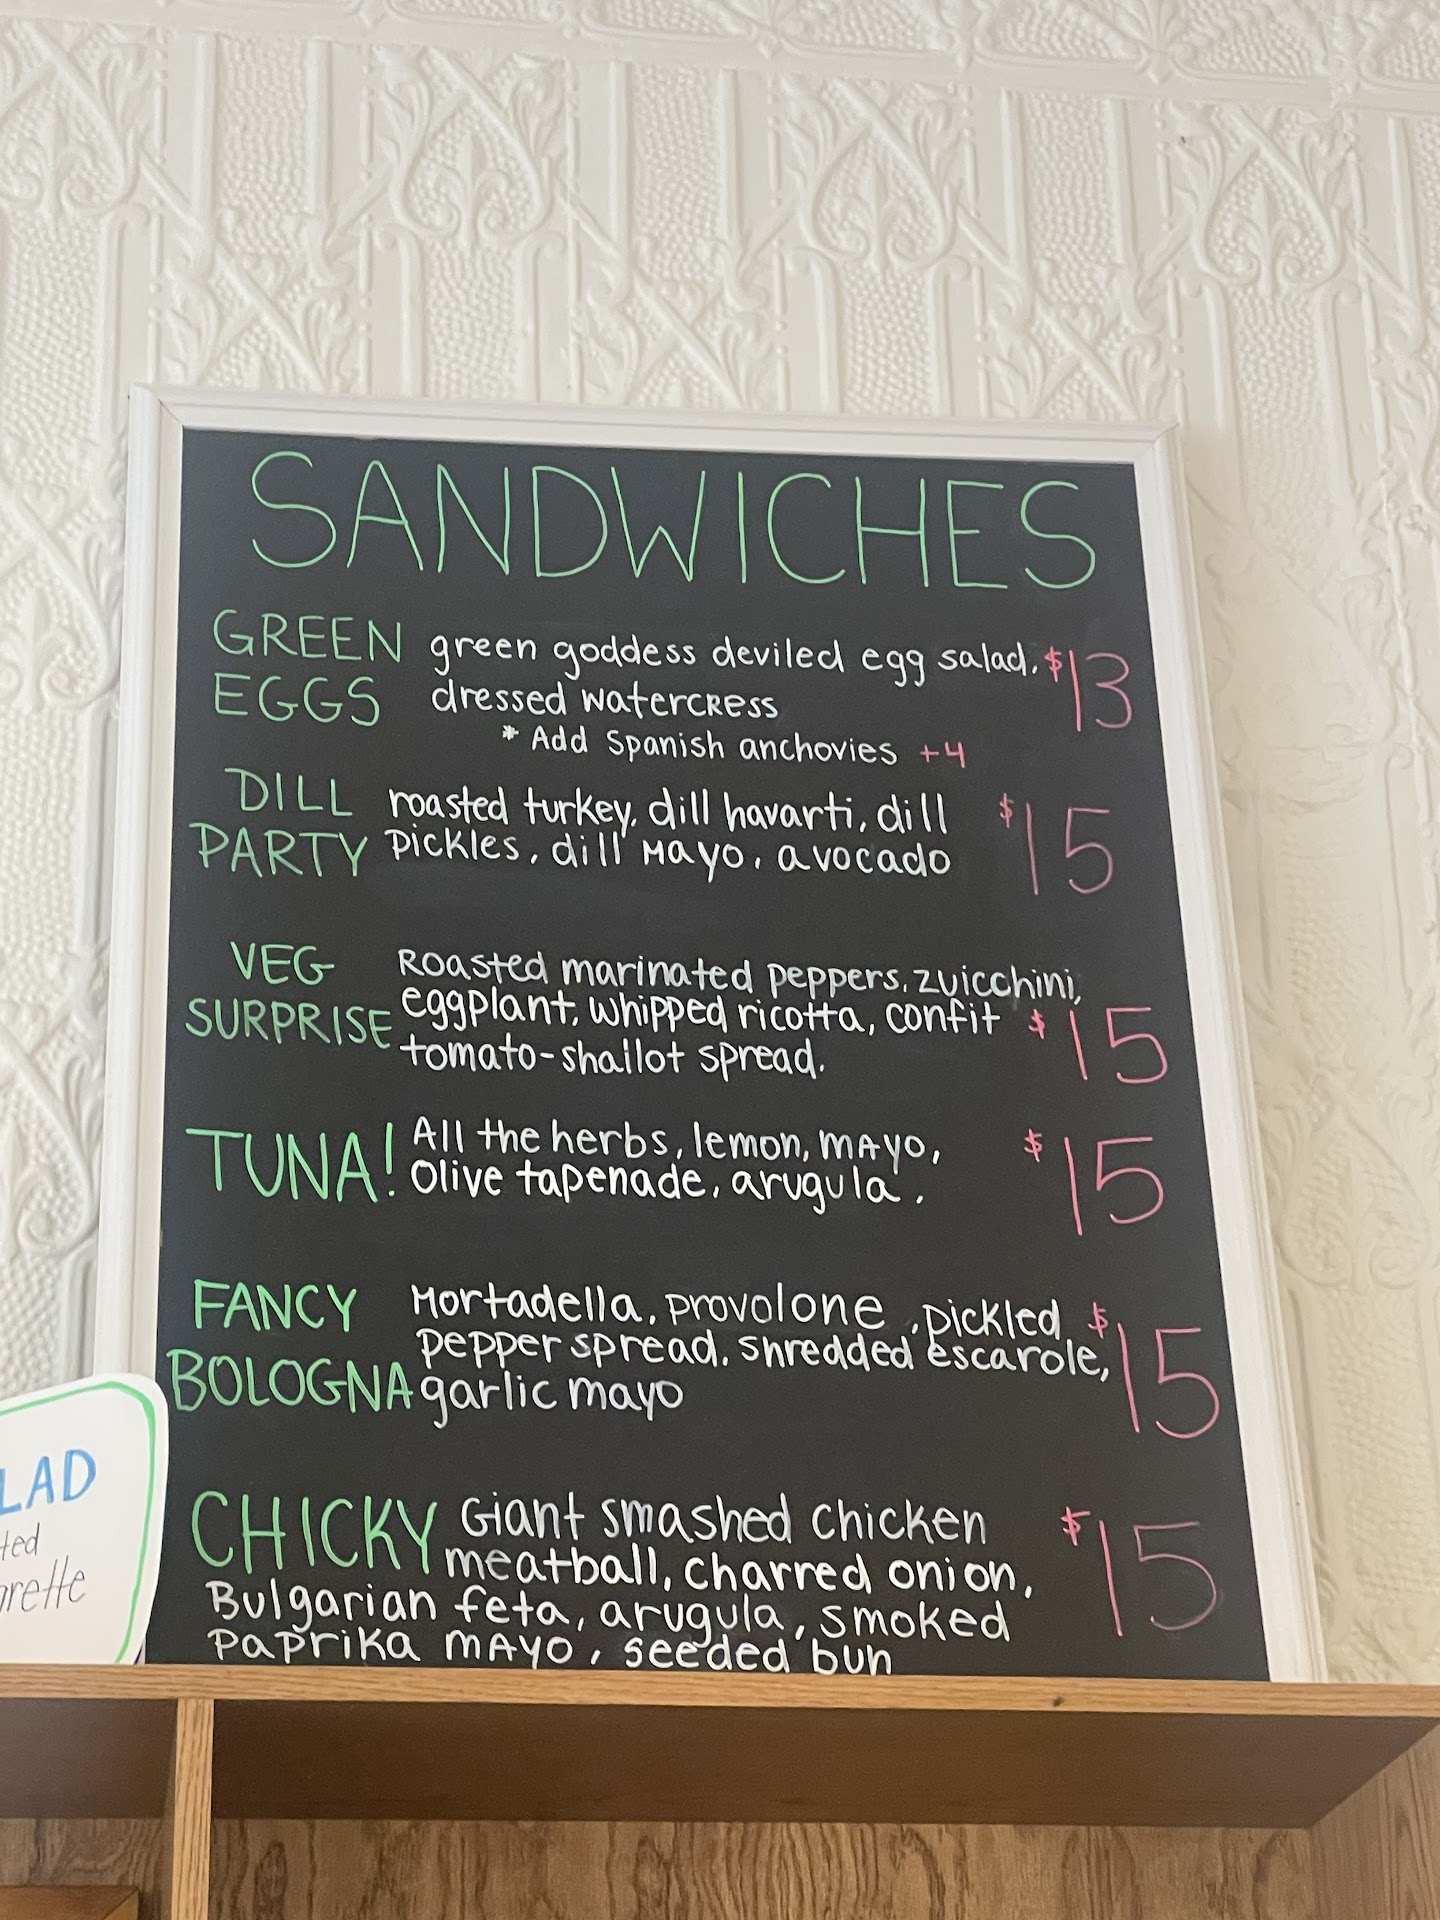 SANDWICHES
GREEN EGGS
green goddess deviled egg salad, $13
dressed watercress
* Add Spanish anchovies +4
DILL PARTY
roasted turkey, dill havarti, dill $15
pickles, dill mayo, avocado
VEG SURPRISE
Roasted marinated peppers, zuicchini,
eggplant, whipped ricotta, confit $15
tomato-shallot spread.
TUNA!
All the herbs, lemon, mayo, $15
Olive tapenade, arugula.
FANCY BOLOGNA
Mortadella, provolone, pickled $15
pepper spread, shredded escarole,
garlic mayo
CHICKY Giant smashed chicken $15
meatball, charred onion,
Bulgarian feta, arugula, smoked
paprika mayo, seeded bun
LAD